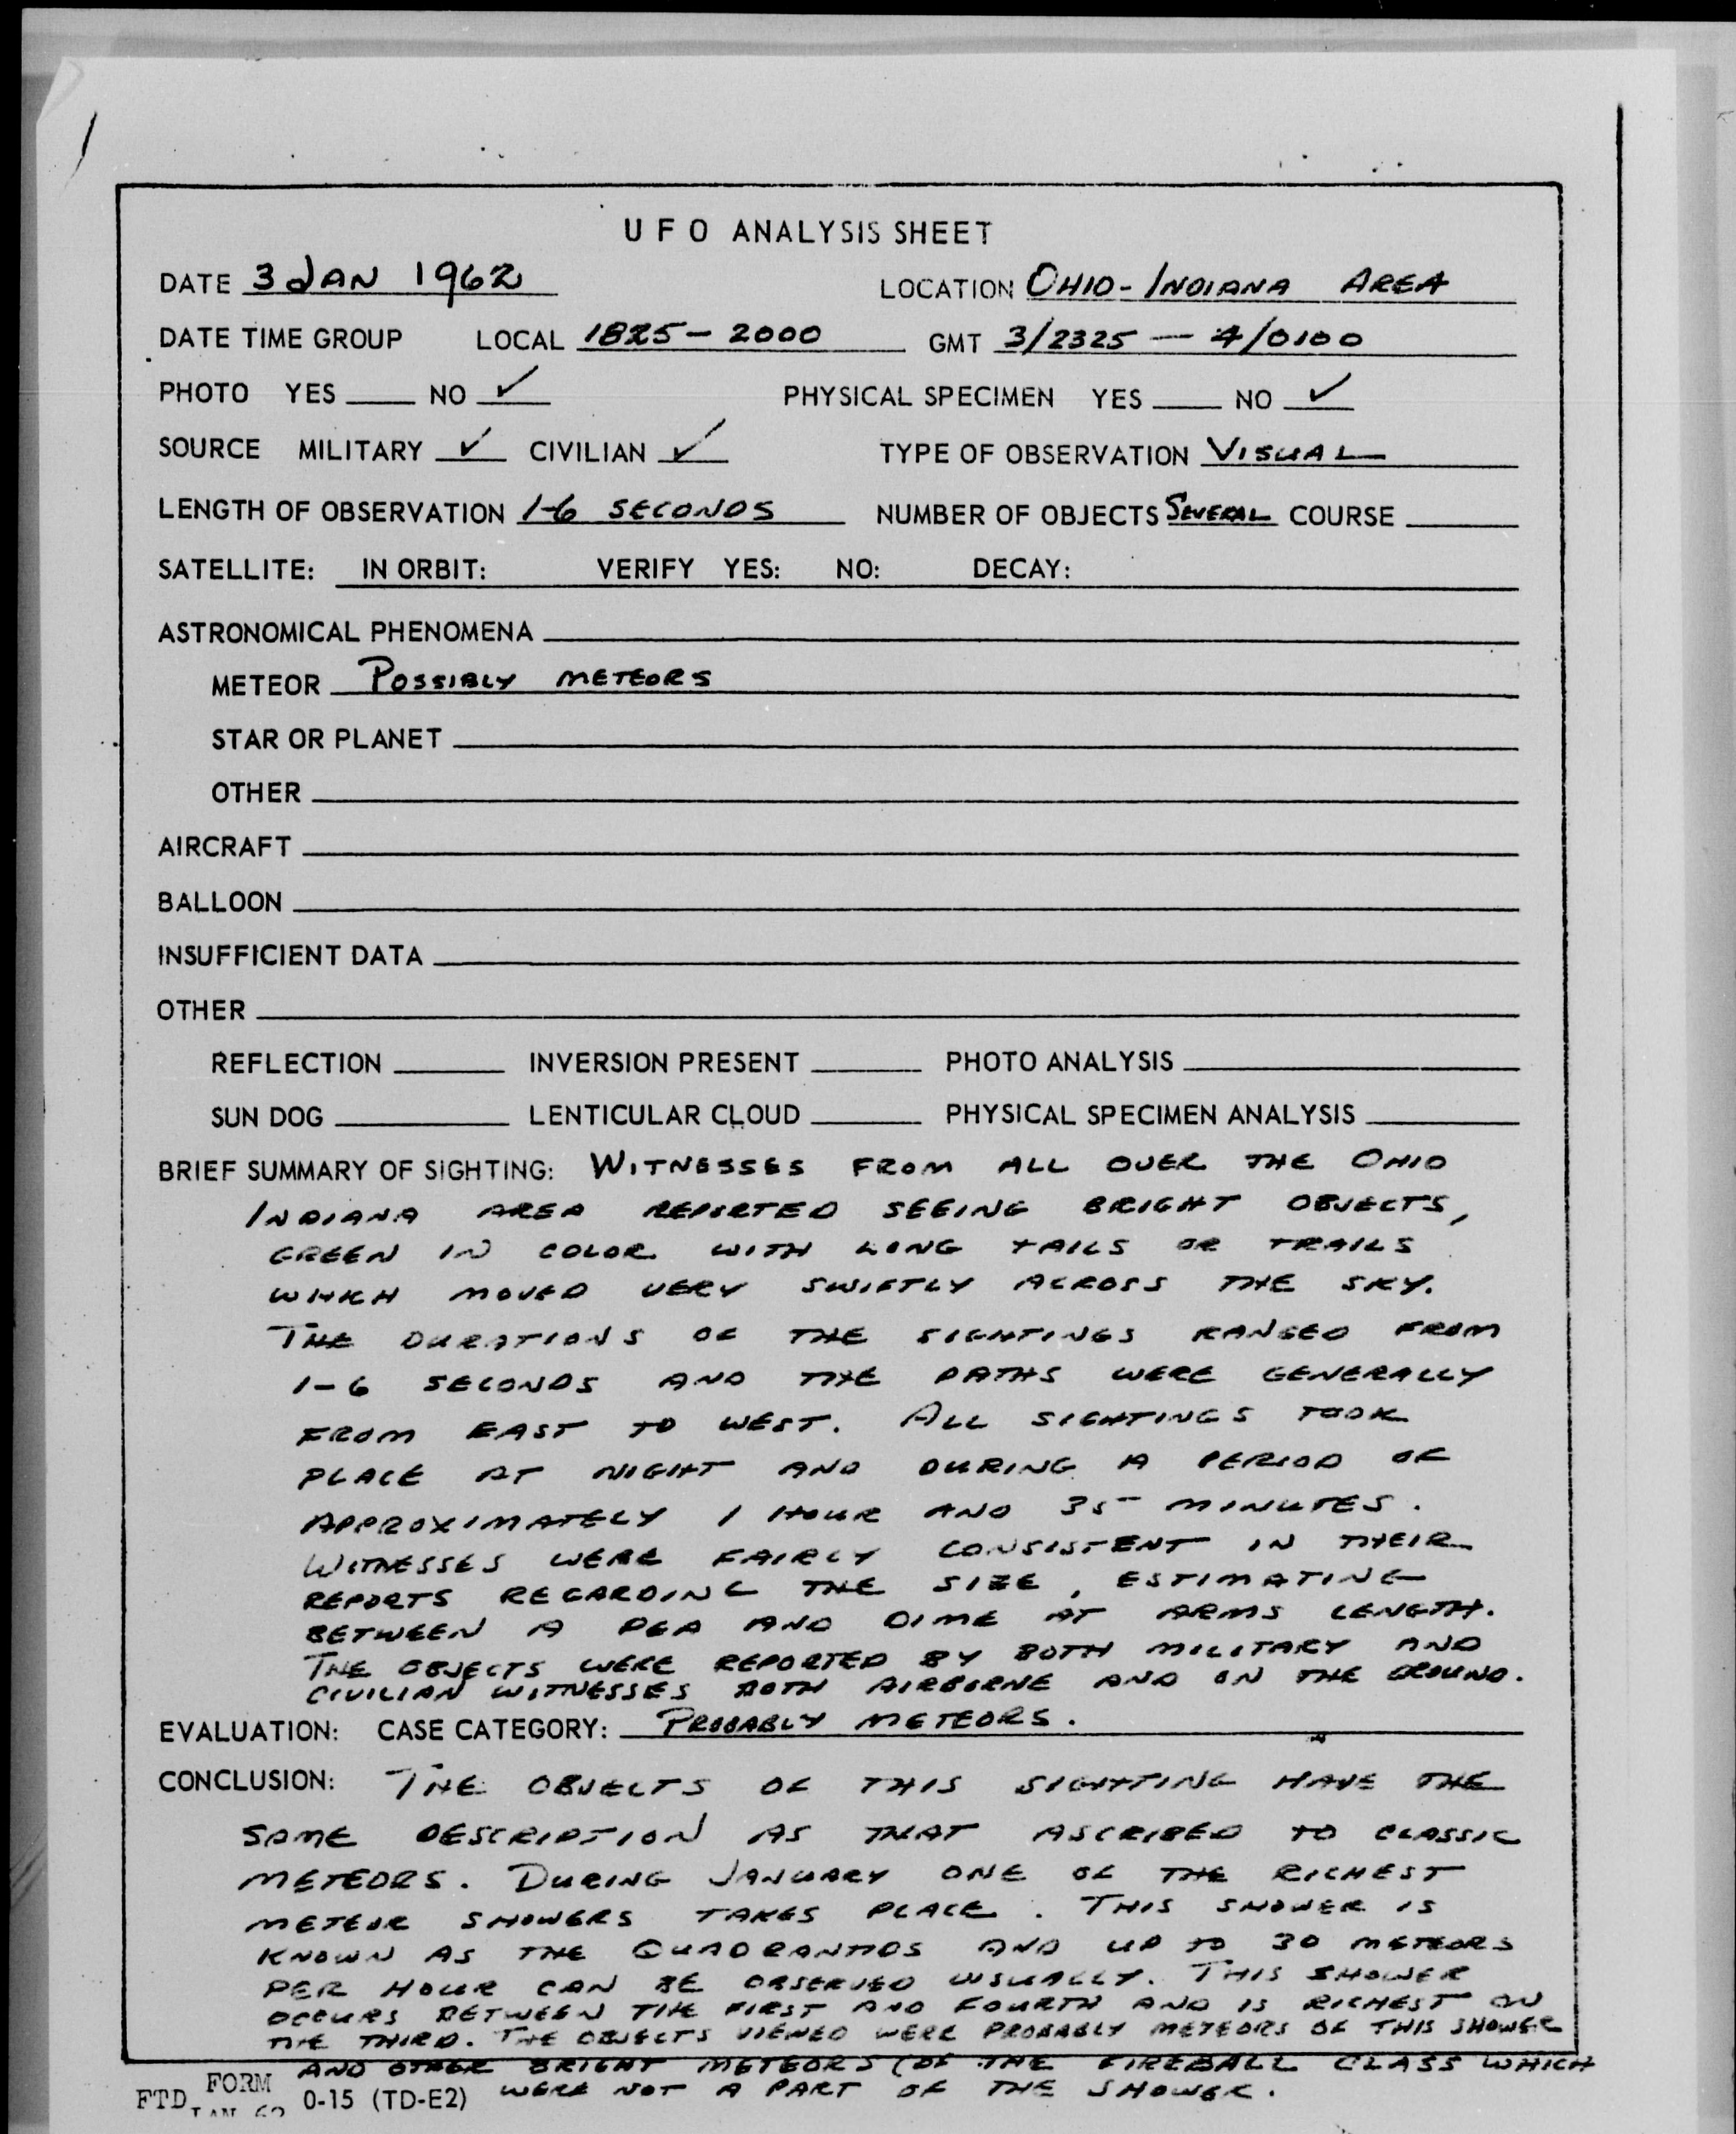 UFO ANALYSIS SHEET
DATE 3 JAN 1962 LOCATION OHIO-INDIANA AREA
DATE TIME GROUP LOCAL 1825-2000 GMT 3/2325 — 4/0100
PHOTO YES ____ NO ✓ PHYSICAL SPECIMEN YES ____ NO ✓
SOURCE MILITARY ✓ CIVILIAN ✓ TYPE OF OBSERVATION VISUAL
LENGTH OF OBSERVATION 1-6 SECONDS NUMBER OF OBJECTS SEVERAL COURSE ____
SATELLITE: IN ORBIT: VERIFY YES: NO: DECAY:
ASTRONOMICAL PHENOMENA
METEOR POSSIBLY METEORS
STAR OR PLANET
OTHER
AIRCRAFT
BALLOON
INSUFFICIENT DATA
OTHER
REFLECTION ____ INVERSION PRESENT ____ PHOTO ANALYSIS ____
SUN DOG ____ LENTICULAR CLOUD ____ PHYSICAL SPECIMEN ANALYSIS ____
BRIEF SUMMARY OF SIGHTING: WITNESSES FROM ALL OVER THE OHIO
INDIANA AREA REPORTED SEEING BRIGHT OBJECTS,
GREEN IN COLOR WITH LONG TAILS OR TRAILS
WHICH MOVED VERY SWIFTLY ACROSS THE SKY.
THE DURATIONS OF THE SIGHTINGS RANGED FROM
1-6 SECONDS AND THE PATHS WERE GENERALLY
FROM EAST TO WEST. ALL SIGHTINGS TOOK
PLACE AT NIGHT AND DURING A PERIOD OF
APPROXIMATELY 1 HOUR AND 35 MINUTES.
WITNESSES WERE FAIRLY CONSISTENT IN THEIR
REPORTS REGARDING THE SIZE, ESTIMATING
BETWEEN A PEA AND DIME AT ARMS LENGTH.
THE OBJECTS WERE REPORTED BY BOTH MILITARY AND
CIVILIAN WITNESSES BOTH AIRBORNE AND ON THE GROUND.
EVALUATION: CASE CATEGORY: PROBABLY METEORS.
CONCLUSION: THE OBJECTS OF THIS SIGHTING HAVE THE
SAME DESCRIPTION AS THAT ASCRIBED TO CLASSIC
METEORS. DURING JANUARY ONE OF THE RICHEST
METEOR SHOWERS TAKES PLACE. THIS SHOWER IS
KNOWN AS THE QUADRANTIDS AND UP TO 30 METEORS
PER HOUR CAN BE OBSERVED USUALLY. THIS SHOWER
OCCURS BETWEEN THE FIRST AND FOURTH AND IS RICHEST ON
THE THIRD. THE OBJECTS VIEWED WERE PROBABLY METEORS OF THIS SHOWER
AND OTHER BRIGHT METEORS (OF THE FIREBALL CLASS WHICH
WERE NOT A PART OF THE SHOWER.
FTD FORM JAN 62 0-15 (TD-E2)